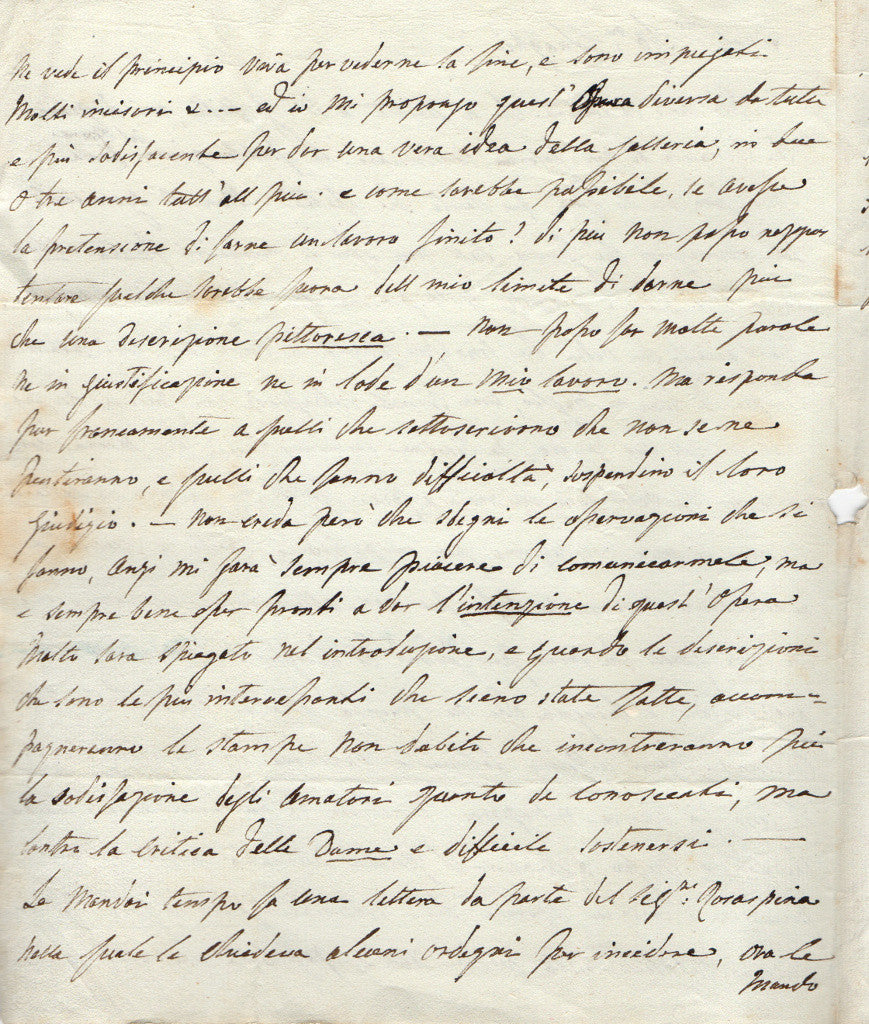 ne vede il principio vivrà per vederne la fine, e sono impiegati
molti incisori &... ed io mi propongo quest' Opera diversa da tutte
e più sodisfacente per dar una vera idea della Galleria, in due
o tre anni tutt' all più. e come sarebbe possibile, se avesse
la pretensione di farne un lavoro finito? di più non posso neppur
tentare perche sarebbe fuora dell mio limite di darne più
che una descrizione pittoresca. — non posso far molte parole
ne in giustificazione ne in lode d'un mio lavoro. ma risponda
pur francamente a quelli che sottoscrivono che non se ne
pentiranno, e quelli che fanno difficoltà, sospendino il loro
giudizio. — non creda però che sdegni le osservazioni che si
fanno, anzi mi farà sempre piacere di comunicarmele, ma
e sempre bene esser pronti a dar l'intenzione di quest' Opera
molto sara spiegato nel introduzione, e quando le descrizioni
che sono le piu interessanti che sieno state fatte, accom=
pagneranno le stampe non dubito che incontreranno più
la sodisfazione degli amatori quanto de conoscenti, ma
contro la critica delle Dame e difficile sostenersi. —
Le mandai tempo fa una lettera da parte del Sigre: Rosaspina
nella quale le chiedeva alcuni ordegni per incidere, ora le
mando